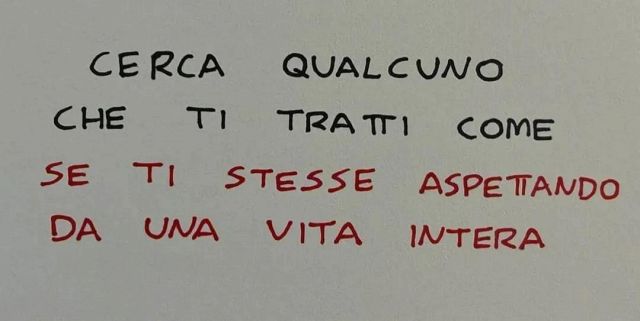 CERCA QUALCUNO
CHE TI TRATTI COME
SE TI STESSE ASPETTANDO
DA UNA VITA INTERA